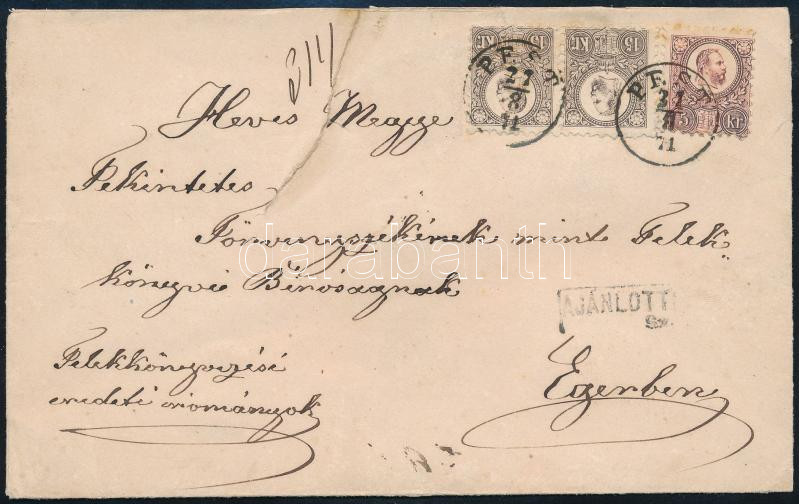 15 KR
15 KR
5 KR
PEST
27
8
71
PEST
27
8
71
Heves Megye
Tekintetes
Törvenyszékének mint Telek
könyvi Biróságnak
AJÁNLOTT
Telekkönyvezési
eredeti iromanyok
Egerben
darabanth